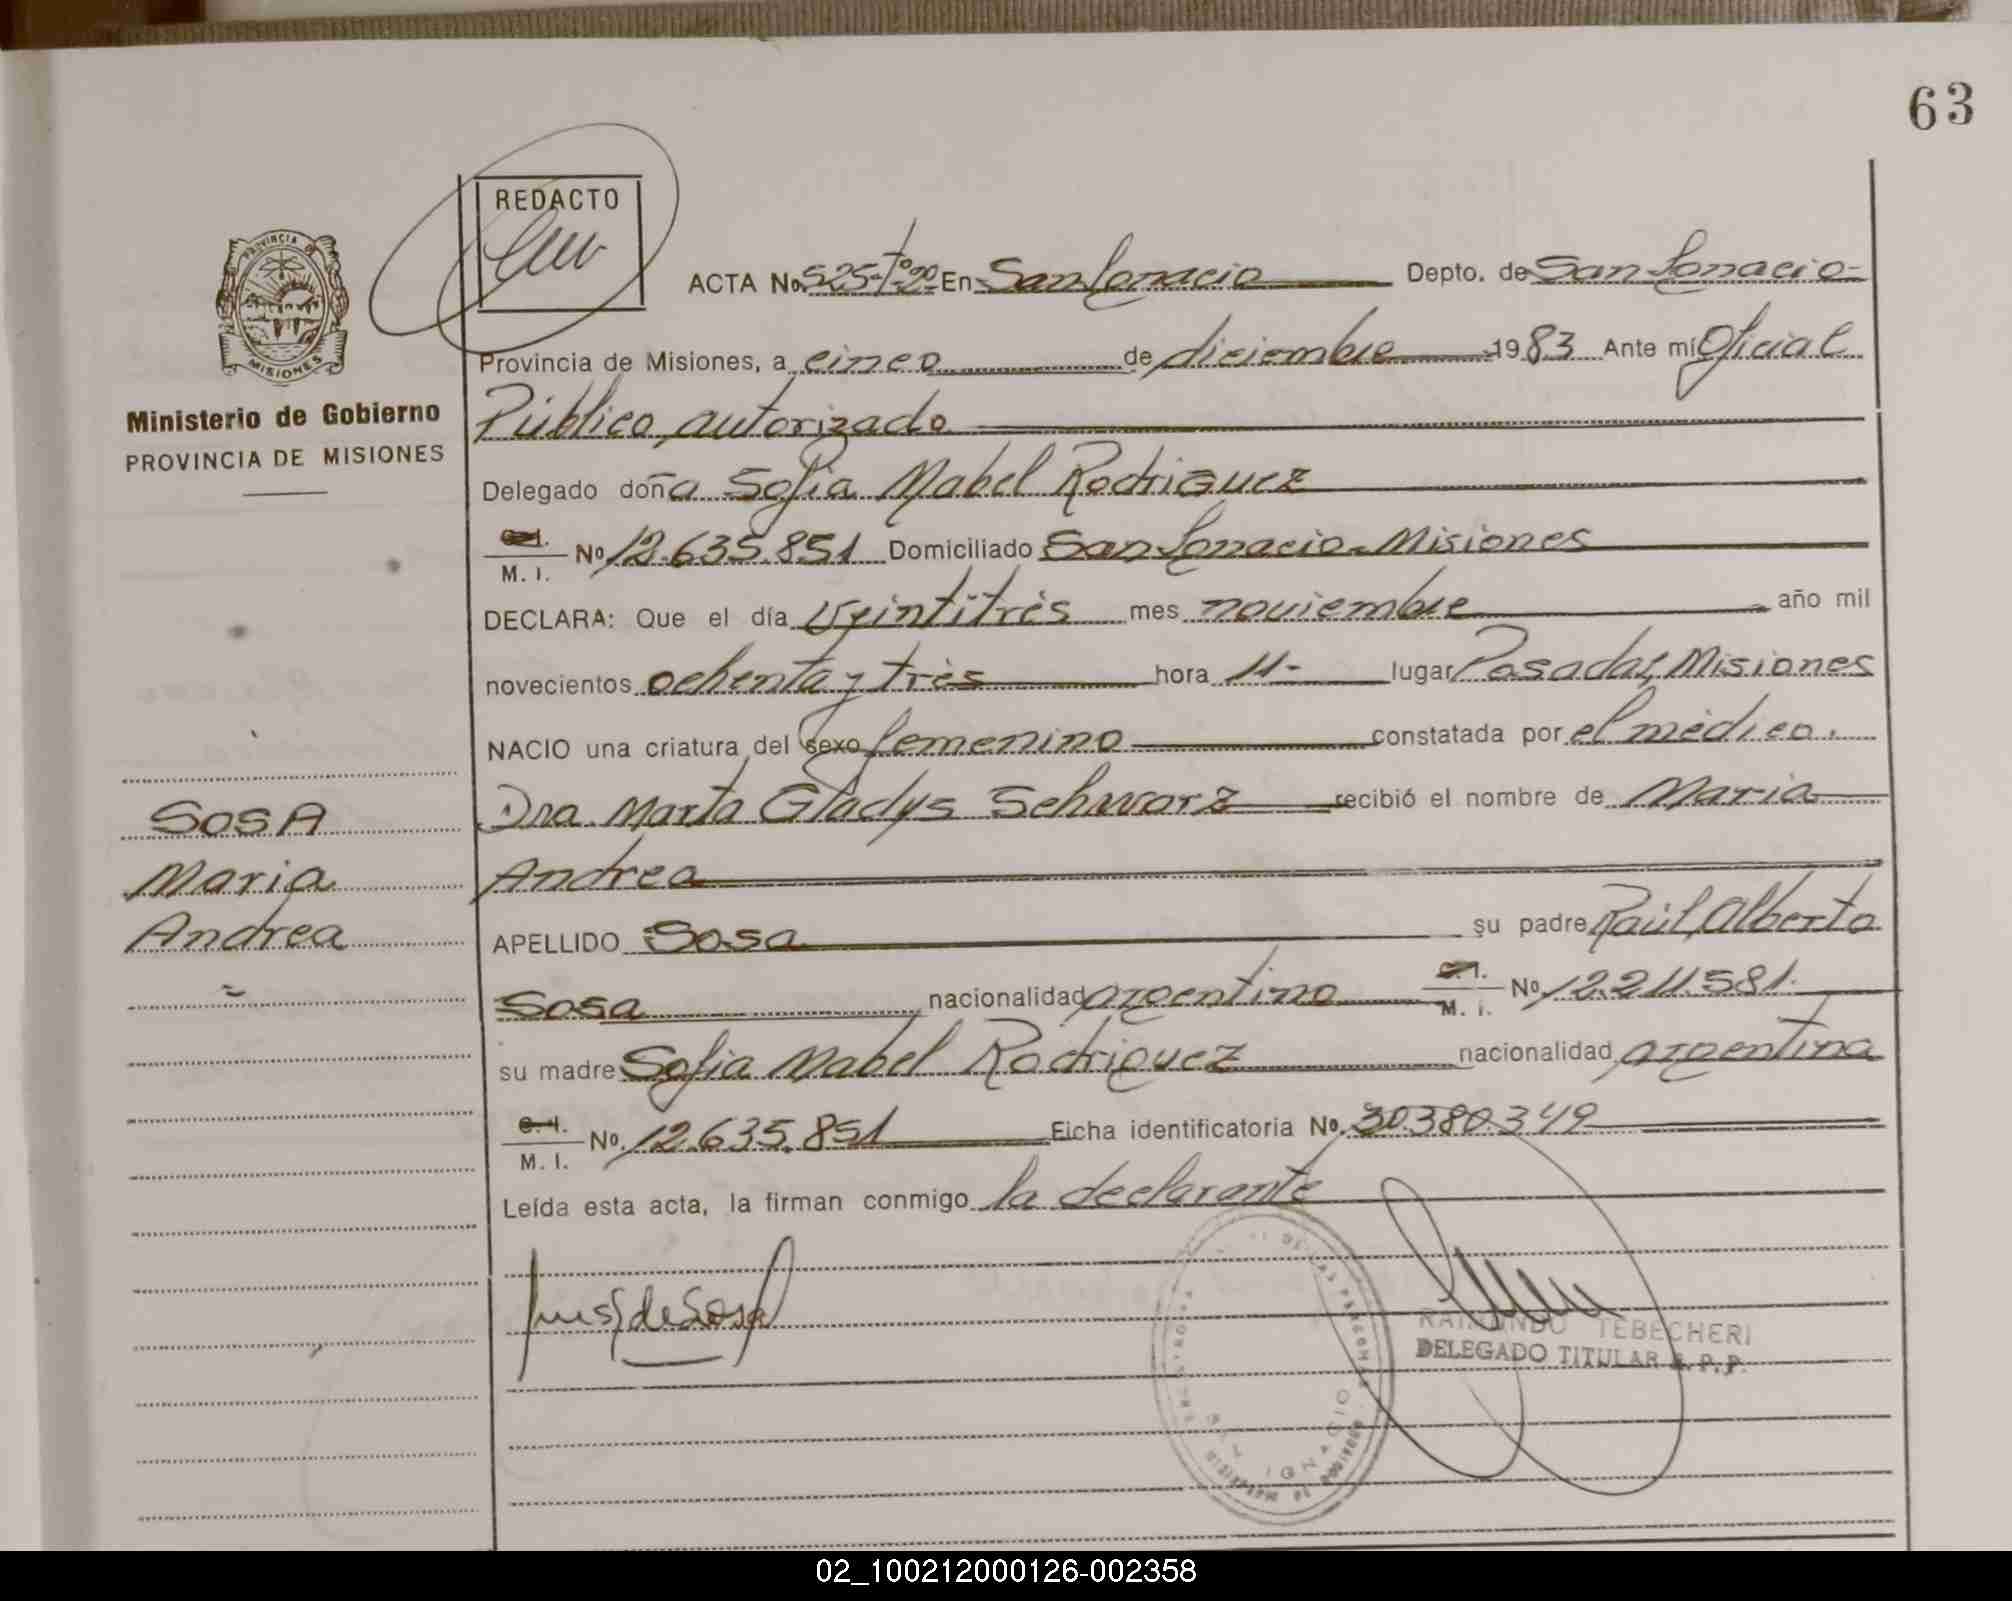 63
REDACTO
PROVINCIA DE
MISIONES
Ministerio de Gobierno
PROVINCIA DE MISIONES
ACTA No. 525-Tº2º En San Ignacio Depto. de San Ignacio-
Provincia de Misiones, a cinco de diciembre 1983 Ante mi Oficial
Público autorizado
Delegado doña Sofia Mabel Rodriguez
C.I. M. I. Nº 12.635.851 Domiciliado San Ignacio-Misiones
DECLARA: Que el día veintitrés mes noviembre año mil
novecientos ochenta y trés hora 11- lugar Posadas, Misiones
NACIO una criatura del sexo femenino constatada por el médico.
Dra. Marta Gladys Schwarz recibió el nombre de Maria
Andrea
APELLIDO Sosa su padre Raúl Alberto
Sosa nacionalidad argentino C.I. M. I. Nº 12.211.581.
su madre Sofia Mabel Rodriguez nacionalidad argentina
C.I. M. I. Nº. 12.635.851 Ficha identificatoria Nº. 30.380.349
Leída esta acta, la firman conmigo la declarante
SOSA
Maria
Andrea
de Sosa
RAIMUNDO TEBECHERI
DELEGADO TITULAR R. P. P.
IGNACIO
02_100212000126-002358